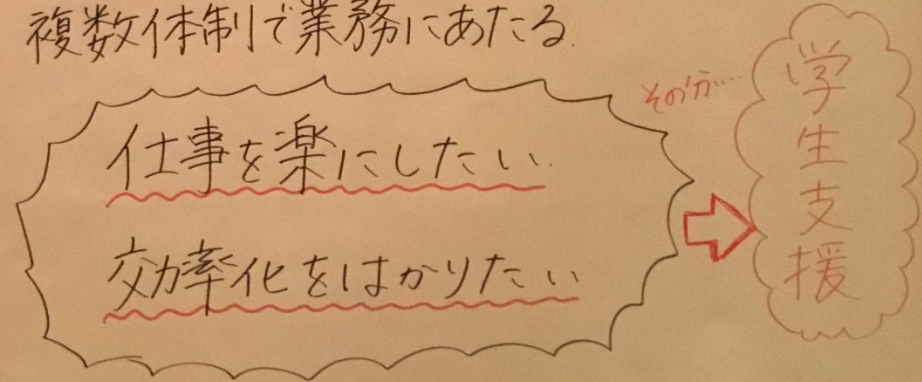 複数体制で業務にあたる
仕事を楽にしたい
効率化をはかりたい
その分…
学生支援